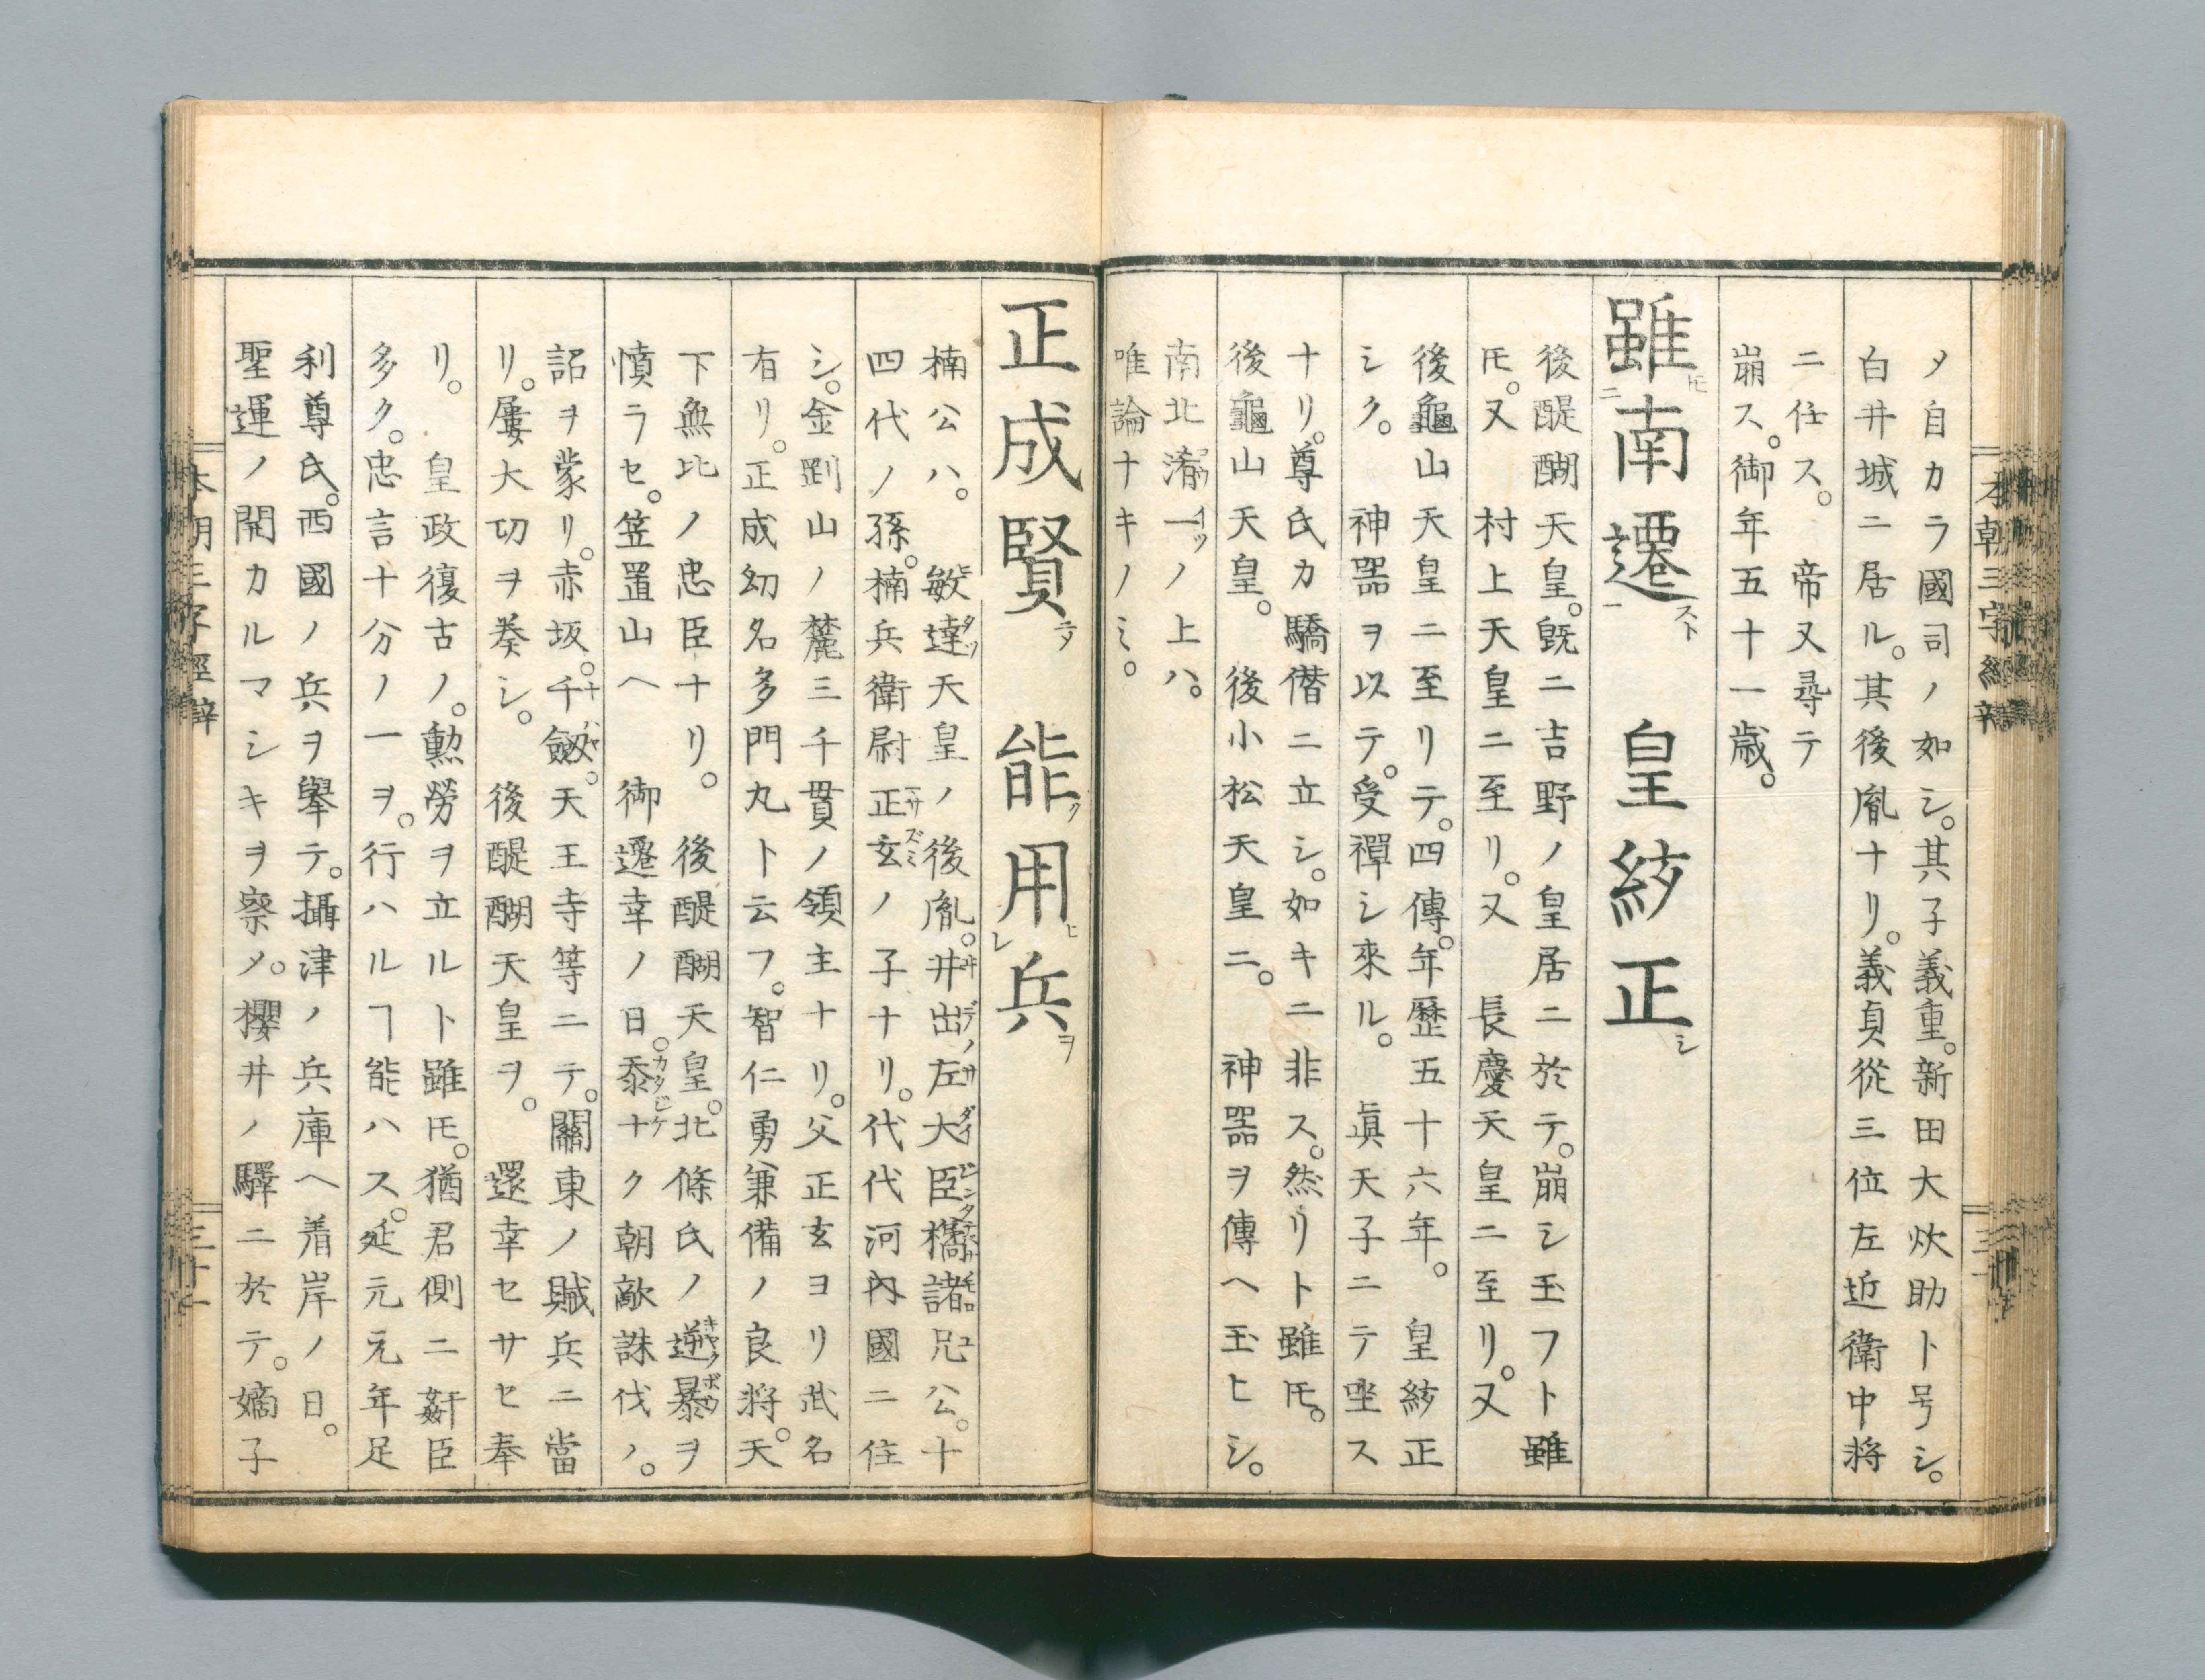 メ自カラ國司ノ如シ。其子義重。新田大炊助ト号シ。
白井城ニ居ル。其後胤ナリ。義貞從三位左近衛中將
ニ任ス。 帝又尋テ
崩ス。御年五十一歳。
雖南遷 皇統正
後醍醐天皇。既ニ吉野ノ皇居ニ於テ。崩シ玉フト雖
𪜈。又 村上天皇ニ至リ。又 長慶天皇ニ至リ。又
後龜山天皇ニ至リテ。四傳。年歷五十六年。 皇統正
シク。 神器ヲ以テ。受禪シ來ル。 眞天子ニテ坐ス
ナリ。尊氏カ驕僭ニ立シ。如キニ非ス。然リト雖𪜈。
後龜山天皇。 後小松天皇ニ。 神器ヲ傳ヘ玉ヒシ。
南北一ノ上ハ。
唯論ナキノミ。
正成賢 能用兵
楠公ハ。 敏達天皇ノ後胤。井出左大臣橘諸兄公。十
四代ノ孫。楠兵衛尉正玄ノ子ナリ。代代河內國ニ住
シ。金剛山ノ麓三千貫ノ領主ナリ。父正玄ヨリ武名
有リ。正成幼名多門丸ト云フ。智仁勇兼備ノ良將。天
下無比ノ忠臣ナリ。 後醍醐天皇。北條氏ノ逆暴ヲ
憤ラセ。笠置山ヘ 御遷幸ノ日。忝ナク朝敵誅伐ノ。
詔ヲ蒙リ。赤坂。千劔。天王寺等ニテ。關東ノ賊兵ニ當
リ。屢大切ヲ奏シ。 後醍醐天皇ヲ。 還幸セサセ奉
リ。 皇政復古ノ。勲勞ヲ立ルト雖𪜈。猶君側ニ姧臣
多ク。忠言十分ノ一ヲ。行ハルヿ能ハス。延元元年足
利尊氏。西國ノ兵ヲ擧テ。攝津ノ兵庫ヘ着岸ノ日。
聖運ノ開カルマシキヲ察メ。櫻井ノ驛ニ於テ。嫡子